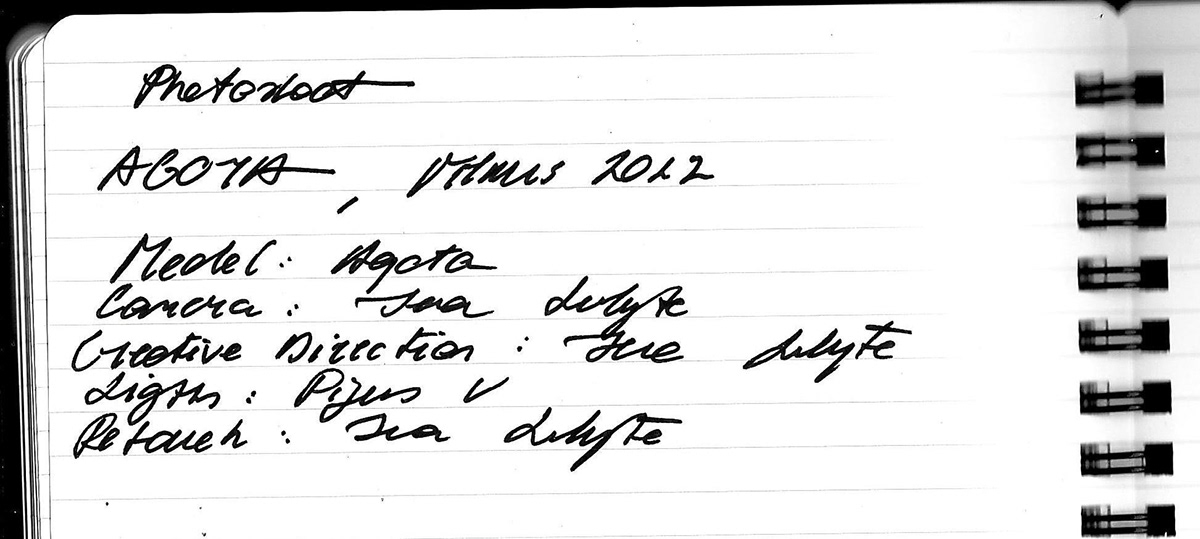 Photoshoot
AGOTA, Vilnius 2022
Model: Agota
Camera: Ieva
Creative Direction: Ieva
Ligths: Pijus V
Retouch: Ieva